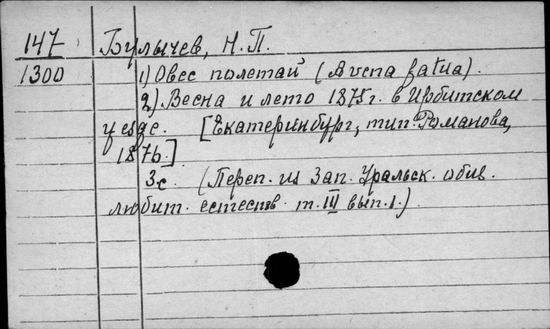 147 Булычев, Н.П.
1300 1) Овес полетай (Avena fatua).
2) Весна и лето 1875 г. в Ирбитском
уезде. [Екатеринбург, тип. Романова,
1876.]
3с. (Переп. из Зап. Уральск. общ.
любит. естеств. т. III вып. 1.)